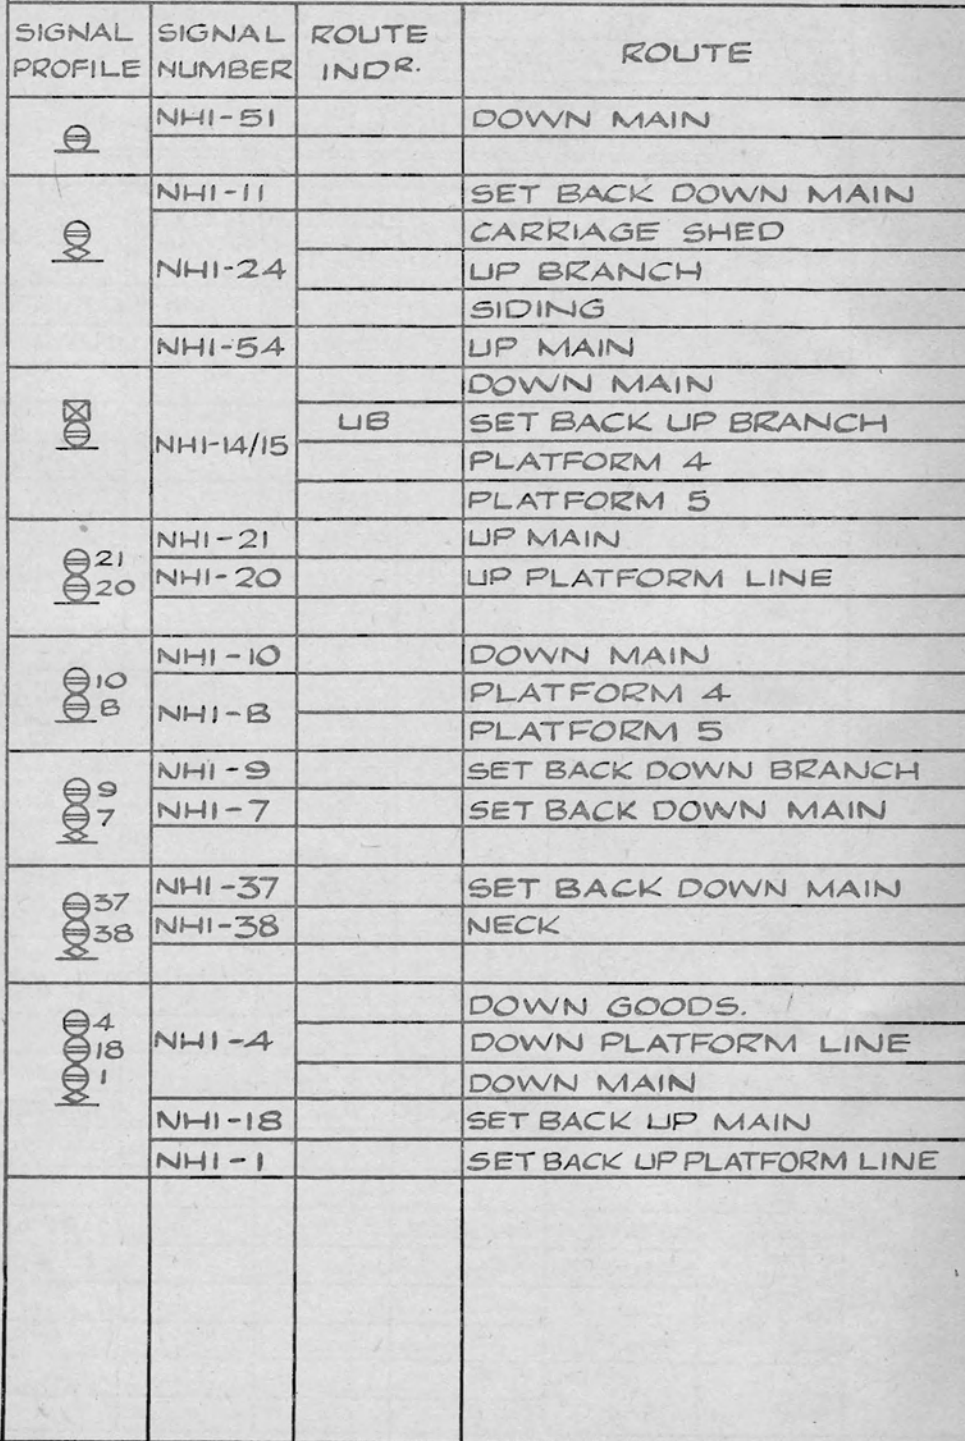 SIGNAL PROFILE SIGNAL NUMBER ROUTE INDR. ROUTE
NH1-51 DOWN MAIN
NH1-11 SET BACK DOWN MAIN
NH1-24 CARRIAGE SHED
UP BRANCH
SIDING
NH1-54 UP MAIN
NH1-14/15 DOWN MAIN
UB SET BACK UP BRANCH
PLATFORM 4
PLATFORM 5
21 NH1-21 UP MAIN
20 NH1-20 UP PLATFORM LINE
10 NH1-10 DOWN MAIN
8 NH1-8 PLATFORM 4
PLATFORM 5
9 NH1-9 SET BACK DOWN BRANCH
7 NH1-7 SET BACK DOWN MAIN
37 NH1-37 SET BACK DOWN MAIN
38 NH1-38 NECK
4 NH1-4 DOWN GOODS.
DOWN PLATFORM LINE
DOWN MAIN
18 NH1-18 SET BACK UP MAIN
1 NH1-1 SET BACK UP PLATFORM LINE